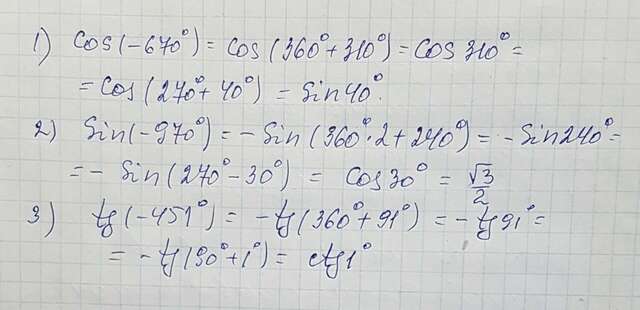 1) Cos(-670°) = Cos(360° + 310°) = Cos 310° =
= Cos(270° + 40°) = Sin 40°.
2) Sin(-970°) = - Sin(360°·2 + 240°) = - Sin 240° =
= - Sin(270° - 30°) = Cos 30° = √3/2
3) tg(-451°) = - tg(360° + 91°) = - tg 91° =
= - tg(90° + 1°) = ctg 1°